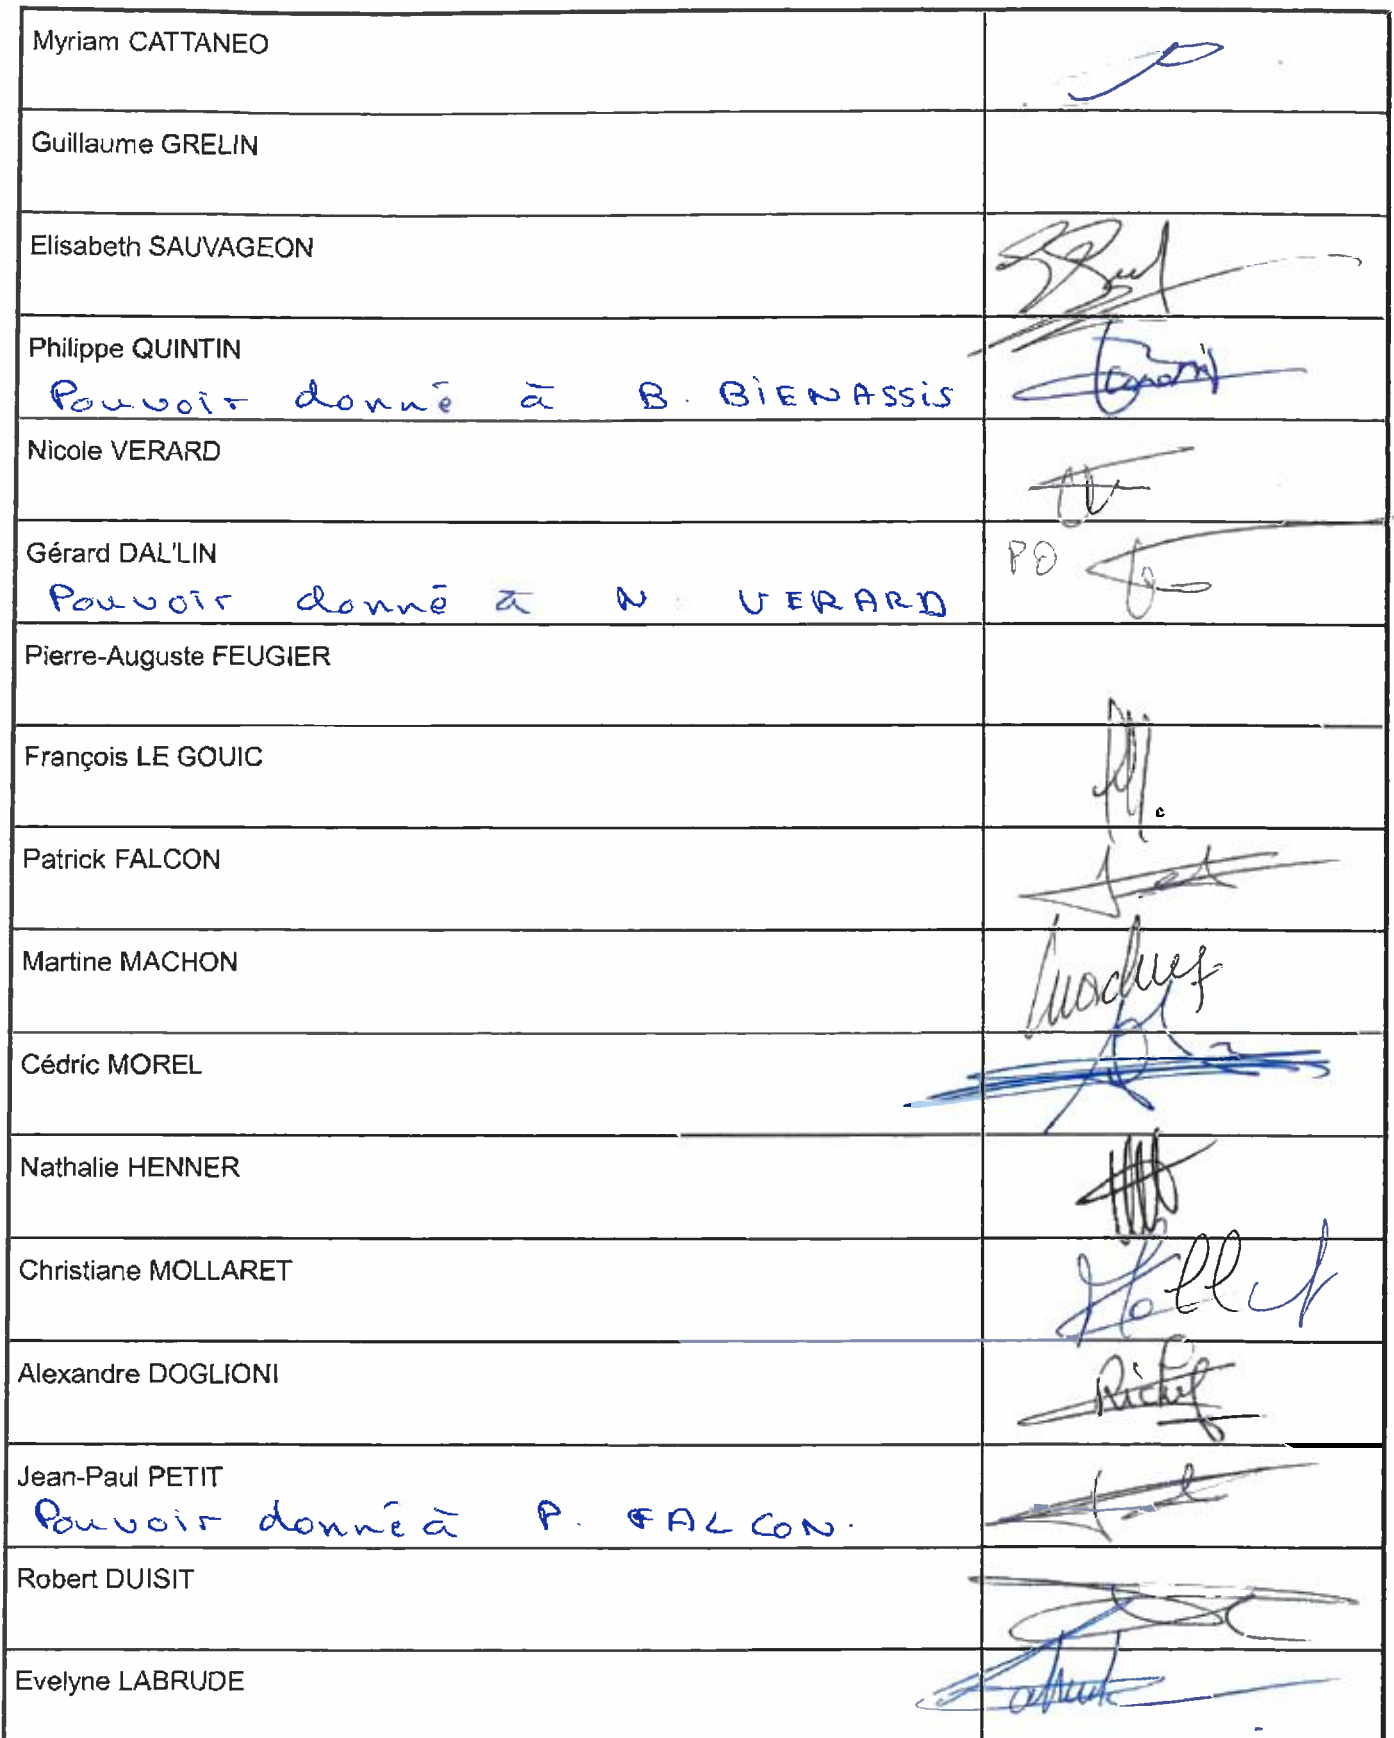 Myriam CATTANEO
Guillaume GRELIN
Elisabeth SAUVAGEON
Philippe QUINTIN
Pouvoir donné à B. BIENASSIS
Nicole VERARD
Gérard DAL'LIN
PO
Pouvoir donné à N. VERARD
Pierre-Auguste FEUGIER
François LE GOUIC
Patrick FALCON
Martine MACHON
Cédric MOREL
Nathalie HENNER
Christiane MOLLARET
Alexandre DOGLIONI
Jean-Paul PETIT
Pouvoir donné à P. FALCON.
Robert DUISIT
Evelyne LABRUDE